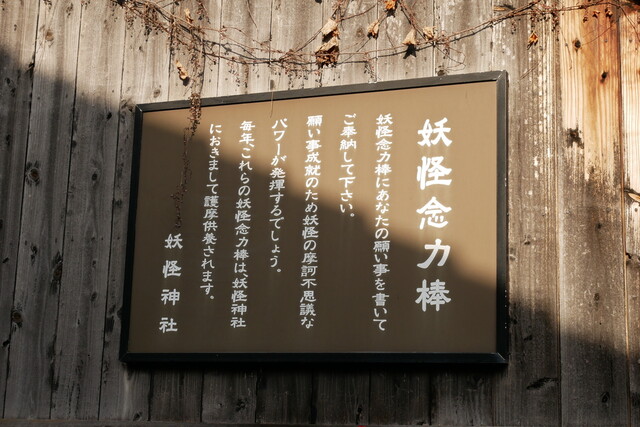 妖怪念力棒
妖怪念力棒にあなたの願い事を書いて
ご奉納して下さい。
願い事成就のため妖怪の摩訶不思議な
パワーが発揮するでしょう。
毎年、これらの妖怪念力棒は、妖怪神社
におきまして護摩供養されます。
妖怪神社